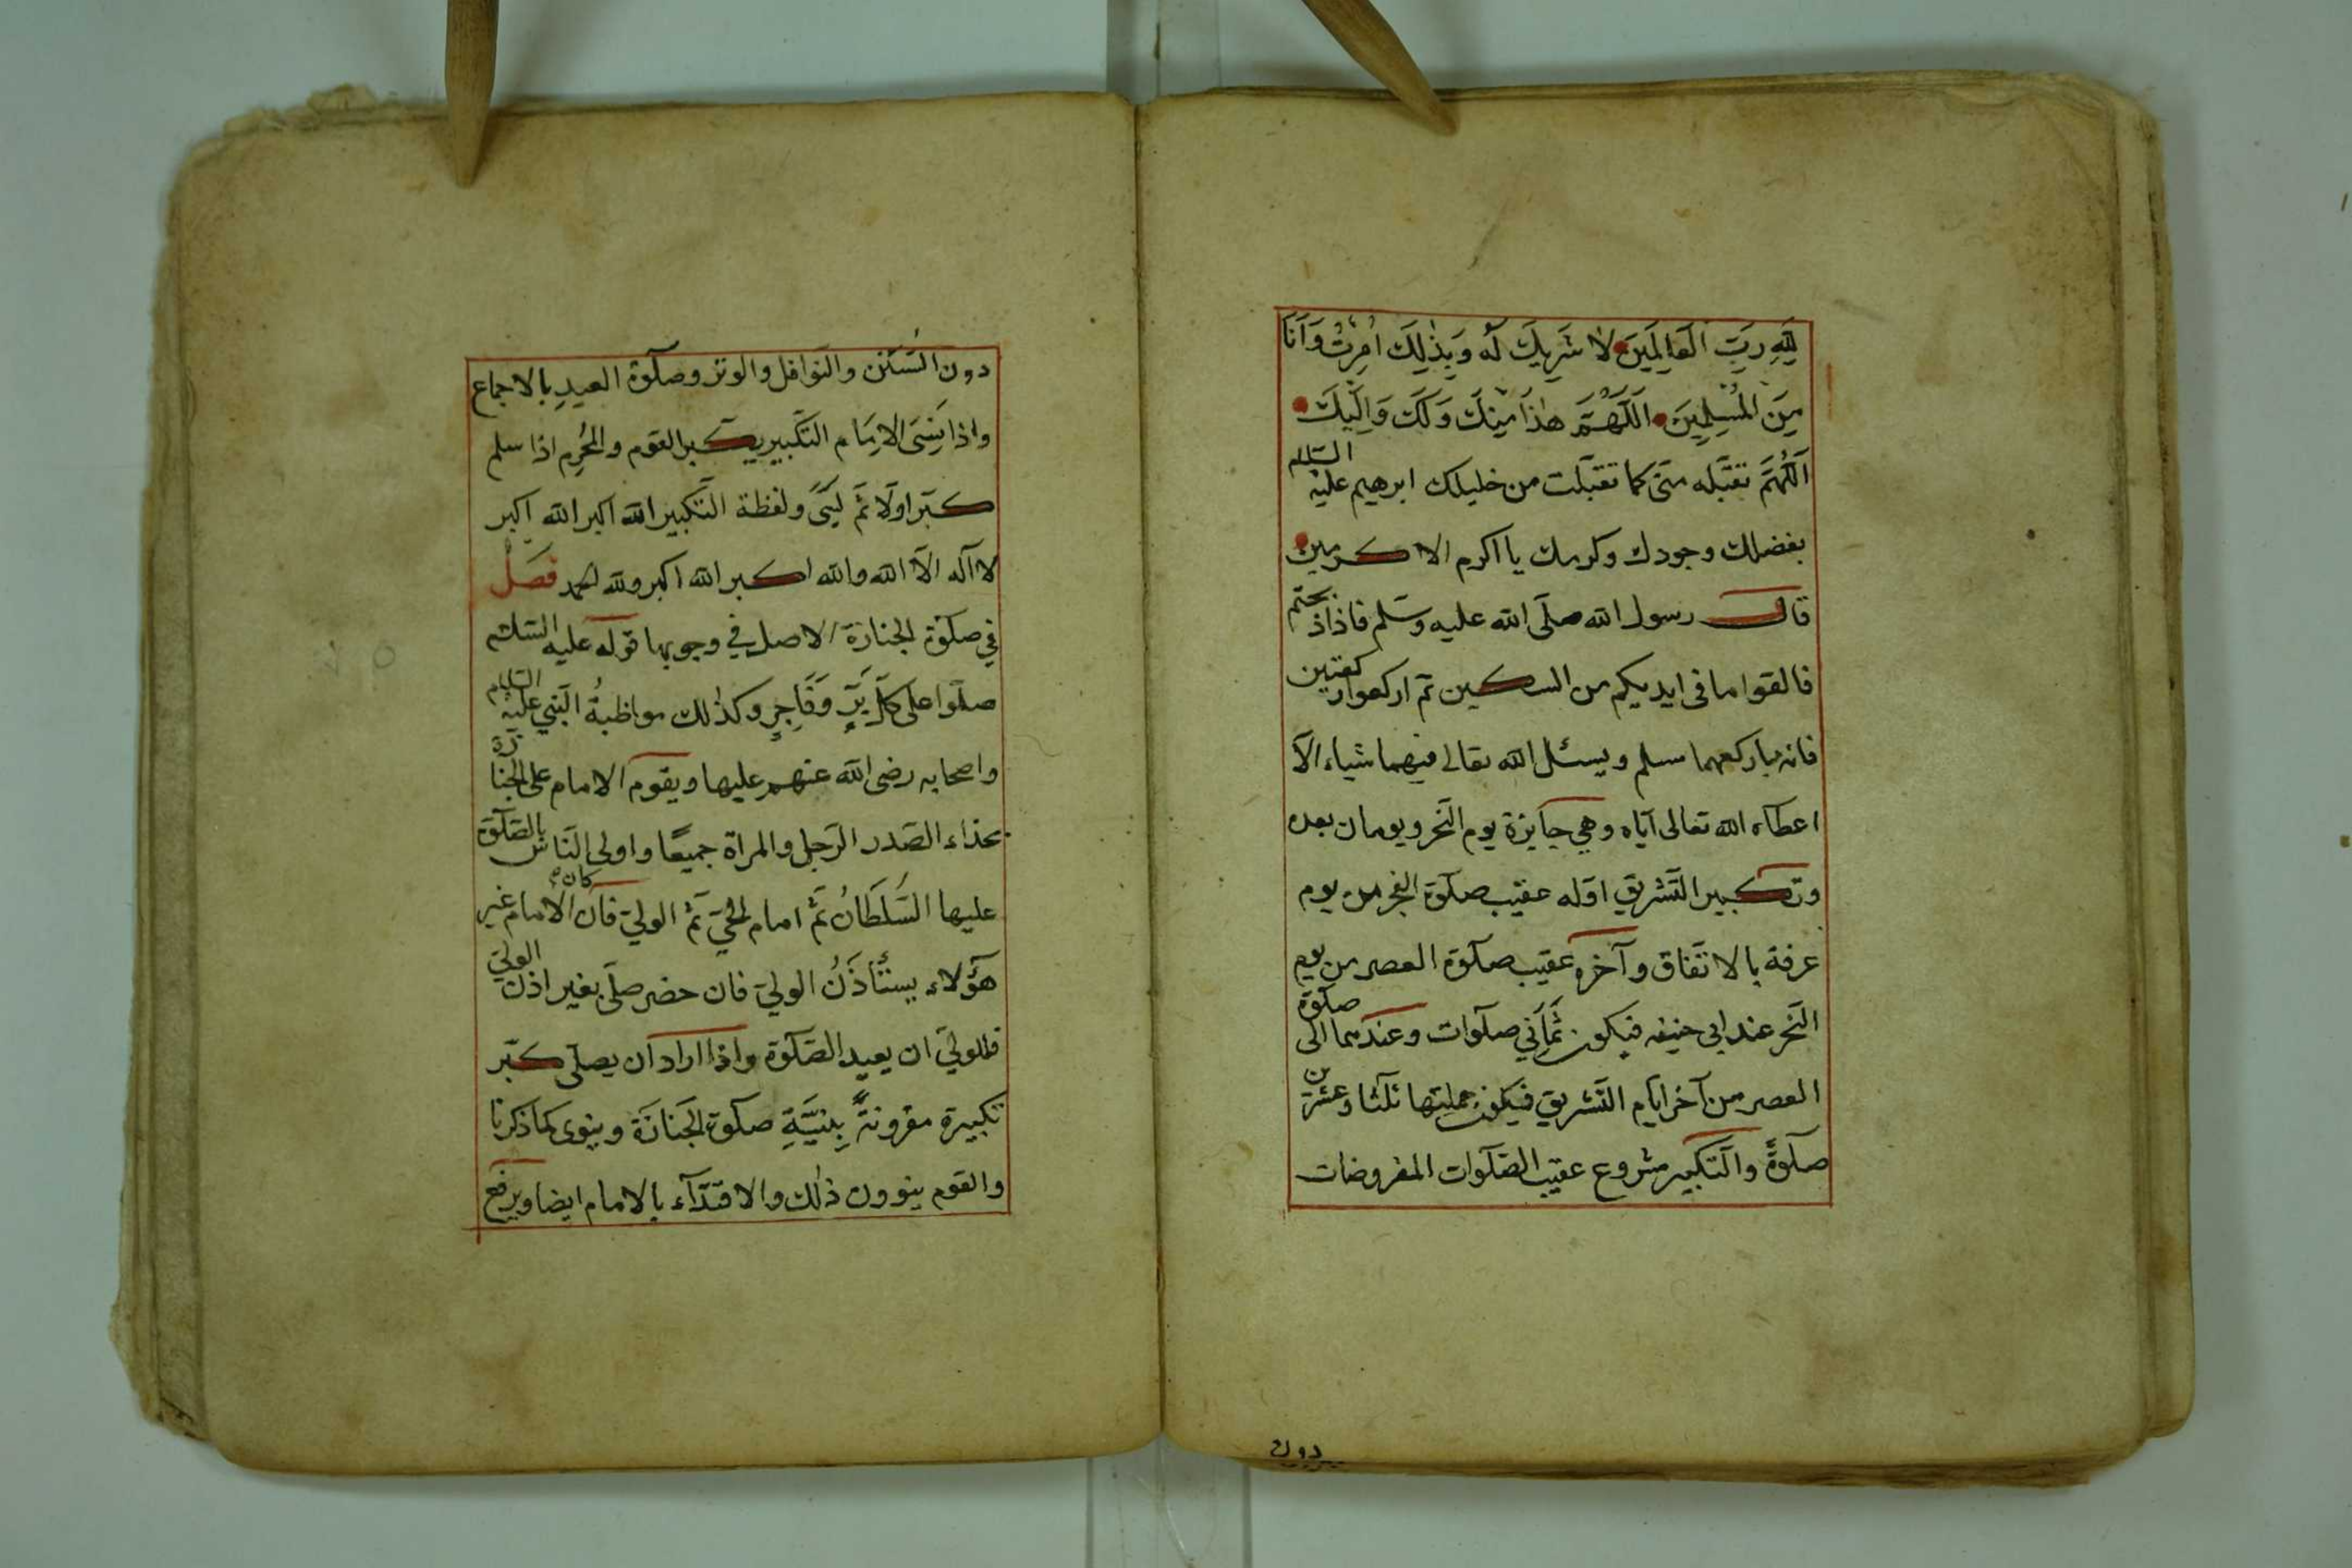 لِلّٰهِ رَبِّ الْعَالَمِينَ لَا شَرِيكَ لَهُ وَبِذٰلِكَ اُمِرْتُ وَاَنَا
مِنَ الْمُسْلِمِينَ اَللّٰهُمَّ هٰذَا مِنْكَ وَلَكَ وَاِلَيْكَ
اَللّٰهُمَّ تقبّله منّى كما تقبّلت من خليلك ابرهيم عليه السّلام
بفضلك وجودك وكرمك يا اكرم الاكرمين
قال رسول الله صلّى الله عليه وسلّم فاذا ذبحتم
فالقوا ما فى ايديكم من السكين ثمّ اركعوا ركعتين
فانه ما ركعهما مسلم ويسئل الله تعالى فيهما شياء الّا
اعطاه الله تعالى ايّاه وهى جايزة يوم النّحر ويومان بعده
وتكبير التّشريق اوّله عقيب صلوة الفجر من يوم
عرفة بالاتّفاق وآخره عقيب صلوة العصر من يوم
النّحر عند ابى حنيفه فيكون ثَمَانِي صلوات وعندهما الى صلوة
العصر من آخر ايّام التّشريق فيكون جملتها ثلثا وعشرين
صلوةً والتّكبير مشروع عقيب الصّلوات المفروضات
دون
دون السّنن والنّوافل والوتر وصلوة العيدِ بالاجماع
واذا نَسِىَ الاِمَام التّكبير يكبر القوم والمُحْرِم اذا سلم
كبّر اوّلا ثمّ لبّى ولفظة التّكبير الله اكبر الله اكبر
لا اله الّا الله والله اكبر الله اكبر ولله الحمد فصل
في صلوة الجنازة الاصل في وجوبها قوله عليه السّلام
صلّوا على كلّ بَرٍّ وَفَاجِرٍ وكذٰلك مواظبةُ النّبي عليه السّلام
واصحابه رضى الله عنهم عليها ويقوم الامام على الجنازة
بحذاء الصّدر الرّجل والمراة جميعًا واولى النّاس بالصّلوة
عليها السّلطانُ ثمّ امام الحيّ ثمّ الوليّ فان كان الامام غير
هؤلاء يستأذنُ الوليّ فان حضر صلّى بغير اذن الولىّ
فللولىّ ان يعيد الصّلوة واذا اراد ان يصلّى كبّر
تكبيرة مقرونةً بِنِيَّةِ صلوة الجَنَازَة وينوى كما ذكرنا
والقوم ينوون ذٰلك والاقتدآء بالامام ايضا ويرفع